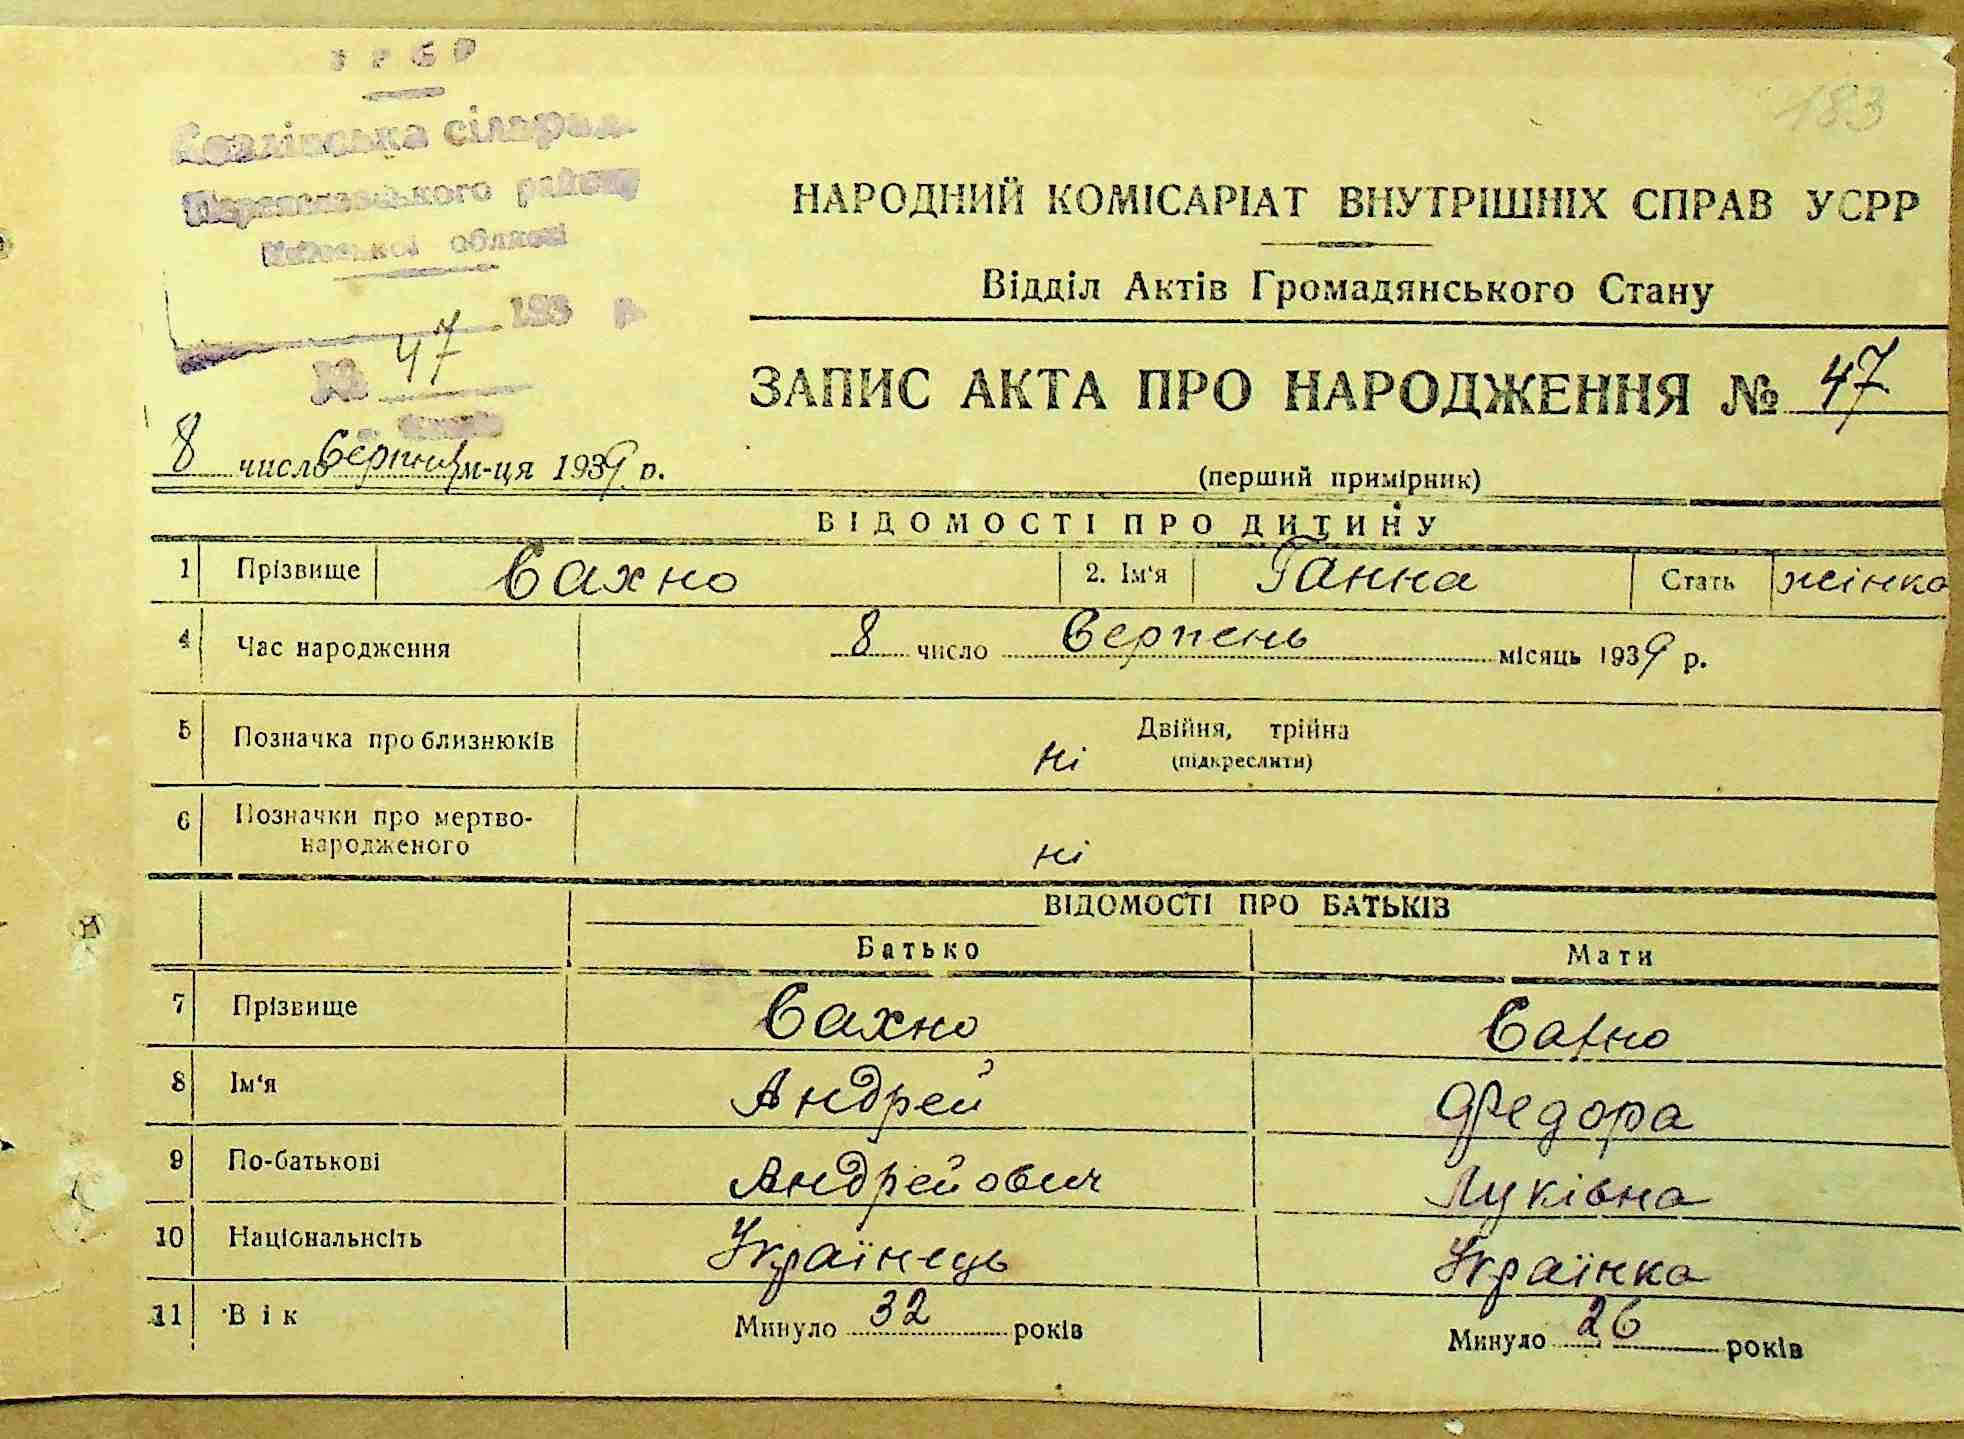 УРСР
Козлівська сільрада
Переяславського району
Київської області
193 р.
№ 47
183
НАРОДНИЙ КОМІСАРІАТ ВНУТРІШНІХ СПРАВ УСРР
Відділ Актів Громадянського Стану
ЗАПИС АКТА ПРО НАРОДЖЕННЯ № 47
8 число Серпня м-ця 1939 р.
(перший примірник)
ВІДОМОСТІ ПРО ДИТИНУ
1 Прізвище Сахно 2. Ім'я Ганна Стать жінка
4 Час народження 8 число Серпень місяць 1939 р.
5 Позначка про близнюків ні Двійня, трійна
(підкреслити)
6 Позначки про мертво-
народженого ні
ВІДОМОСТІ ПРО БАТЬКІВ
Батько Мати
7 Прізвище Сахно Сахно
8 Ім'я Андрей Федора
9 По-батькові Андрейович Луківна
10 Національнсіть Українець Українка
11 Вік Минуло 32 років Минуло 26 років